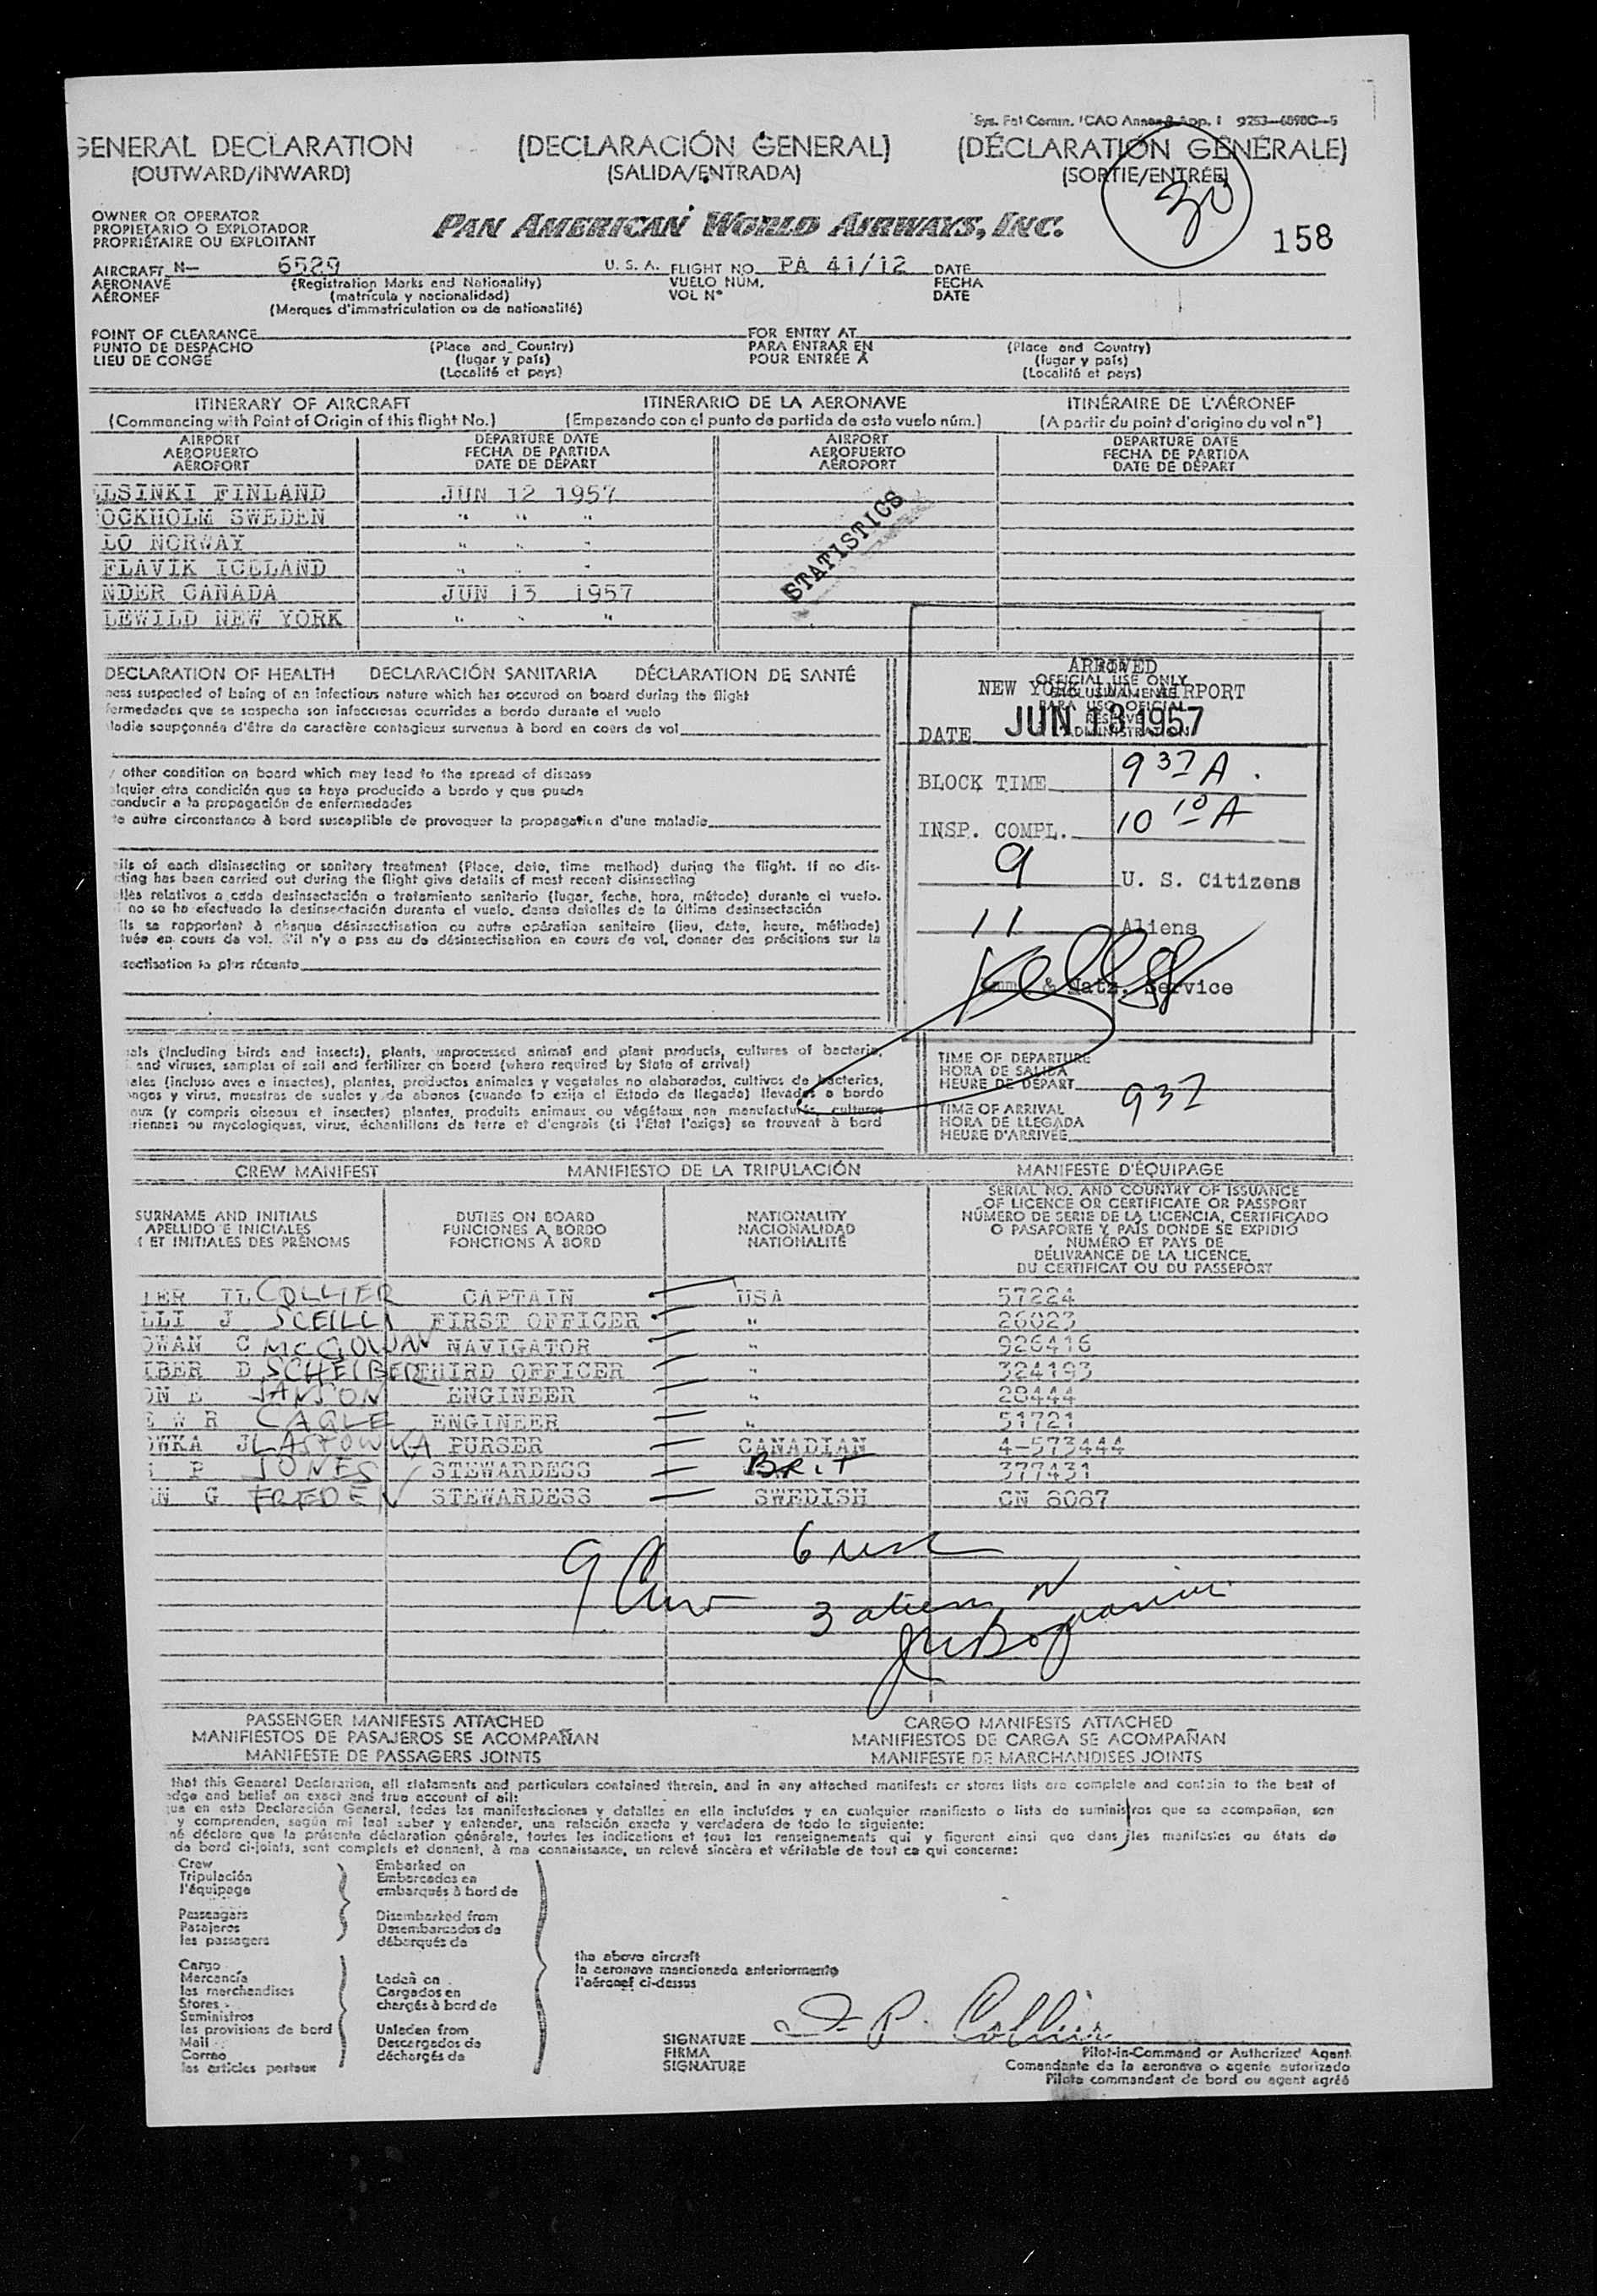 Sys. Fal Comm. ICAO Annex 9 App. 1 9253-6898C-5
GENERAL DECLARATION (DECLARACIÓN GENERAL) (DÉCLARATION GÉNÉRALE)
(OUTWARD/INWARD) (SALIDA/ENTRADA) (SORTIE/ENTRÉE)
30
158
OWNER OR OPERATOR
PROPIETARIO O EXPLOTADOR
PROPRIÉTAIRE OU EXPLOITANT
PAN AMERICAN WORLD AIRWAYS, INC.
AIRCRAFT N— 6529 U. S. A. FLIGHT NO. PA 41/12 DATE
AERONAVE (Registration Marks and Nationality) VUELO NÚM. FECHA
AÉRONEF (matrícula y nacionalidad) VOL N° DATE
(Marques d'immatriculation ou de nationalité)
POINT OF CLEARANCE FOR ENTRY AT
PUNTO DE DESPACHO (Place and Country) PARA ENTRAR EN (Place and Country)
LIEU DE CONGÉ (lugar y país) POUR ENTRÉE À (lugar y país)
(Localité et pays) (Localité et pays)
ITINERARY OF AIRCRAFT ITINERARIO DE LA AERONAVE ITINÉRAIRE DE L'AÉRONEF
(Commencing with Point of Origin of this flight No.) (Empezando con el punto de partida de este vuelo núm.) (A partir du point d'origine du vol n°)
AIRPORT DEPARTURE DATE AIRPORT DEPARTURE DATE
AEROPUERTO FECHA DE PARTIDA AEROPUERTO FECHA DE PARTIDA
AÉROPORT DATE DE DÉPART AÉROPORT DATE DE DÉPART
LSINKI FINLAND JUN 12 1957
OCKHOLM SWEDEN " " "
LO NORWAY " " "
FLAVIK ICELAND " " "
NDER CANADA JUN 13 1957
LEWILD NEW YORK " " "
STATISTICS
DECLARATION OF HEALTH DECLARACIÓN SANITARIA DÉCLARATION DE SANTÉ
ness suspected of being of an infectious nature which has occured on board during the flight
fermedades que se sospecha son infecciosas ocurridas a bordo durante el vuelo
ladie soupçonnée d'être de caractère contagieux survenue à bord en cours de vol
other condition on board which may lead to the spread of disease
lquier otra condición que se haya producido a bordo y que pueda
conducir a la propagación de enfermedades
te autre circonstance à bord susceptible de provoquer la propagation d'une maladie
ils of each disinsecting or sanitary treatment (Place, date, time method) during the flight. If no dis-
cting has been carried out during the flight give details of most recent disinsecting
lles relativos a cada desinsectación o tratamiento sanitario (lugar, fecha, hora, método) durante el vuelo.
no se ha efectuado la desinsectación durante el vuelo, dense detalles de la última desinsectación
ils se rapportant à chaque désinsectisation ou autre opération sanitaire (lieu, date, heure, méthode)
tuée en cours de vol. S'il n'y a pas eu de désinsectisation en cours de vol, donner des précisions sur la
sectisation la plus récente
ARRIVED
OFFICIAL USE ONLY
NEW YORK INT. AIRPORT
EXCLUSIVAMENTE
PARA USO OFICIAL
RESERVÉ
ADMINISTRATION
DATE JUN 13 1957
BLOCK TIME 9 37 A.
INSP. COMPL. 10 10 A
9 U. S. Citizens
11 Aliens
Imm. & Natz. Service
als (including birds and insects), plants, unprocessed animal and plant products, cultures of bacteria,
and viruses, samples of soil and fertilizer on board (where required by State of arrival)
ales (incluso aves e insectos), plantas, productos animales y vegetales no elaborados, cultivos de bacterias,
ongos y virus, muestras de suelos y de abonos (cuando lo exija el Estado de llegada) llevados a bordo
aux (y compris oiseaux et insectes) plantes, produits animaux ou végétaux non manufacturés, cultures
riennes ou mycologiques, virus, échantillons de terre et d'engrais (si l'État l'exige) se trouvant à bord
TIME OF DEPARTURE
HORA DE SALIDA
HEURE DE DÉPART
937
TIME OF ARRIVAL
HORA DE LLEGADA
HEURE D'ARRIVÉE
CREW MANIFEST MANIFIESTO DE LA TRIPULACIÓN MANIFESTE D'ÉQUIPAGE
SURNAME AND INITIALS
APELLIDO E INICIALES
M ET INITIALES DES PRÉNOMS
DUTIES ON BOARD
FUNCIONES A BORDO
FONCTIONS À BORD
NATIONALITY
NACIONALIDAD
NATIONALITÉ
SERIAL NO. AND COUNTRY OF ISSUANCE
OF LICENCE OR CERTIFICATE OR PASSPORT
NÚMERO DE SERIE DE LA LICENCIA, CERTIFICADO
O PASAPORTE Y PAÍS DONDE SE EXPIDIÓ
NUMÉRO ET PAYS DE
DÉLIVRANCE DE LA LICENCE,
DU CERTIFICAT OU DU PASSEPORT
IER IL COLLIER CAPTAIN USA 57224
LLI J SCEILLI FIRST OFFICER " 26023
OWAN C MCGOWAN NAVIGATOR " 926416
IBER D SCHEIBER THIRD OFFICER " 324193
ON E JANSON ENGINEER " 28444
E W R CAGLE ENGINEER " 51721
OWKA J LASTOWKA PURSER CANADIAN 4-573444
P JONES STEWARDESS BRIT 377431
N G FREDEN STEWARDESS SWEDISH CN 8087
9 Crew
6 usc
3 aliens
PASSENGER MANIFESTS ATTACHED CARGO MANIFESTS ATTACHED
MANIFIESTOS DE PASAJEROS SE ACOMPAÑAN MANIFIESTOS DE CARGA SE ACOMPAÑAN
MANIFESTE DE PASSAGERS JOINTS MANIFESTE DE MARCHANDISES JOINTS
that this General Declaration, all statements and particulars contained therein, and in any attached manifests or stores lists are complete and contain to the best of
edge and belief an exact and true account of all:
ue en esta Declaración General, todas las manifestaciones y detalles en ella incluídos y en cualquier manifiesto o lista de suministros que se acompañan, son
y comprenden, según mi leal saber y entender, una relación exacta y verdadera de todo lo siguiente:
né déclare que la présente déclaration générale, toutes les indications et tous les renseignements qui y figurent ainsi que dans les manifestes ou états de
de bord ci-joints, sont complets et donnent, à ma connaissance, un relevé sincère et véritable de tout ce qui concerne:
Crew Embarked on
Tripulación Embarcados en
l'équipage embarqués à bord de
Passengers Disembarked from
Pasajeros Desembarcados de
les passagers débarqués de
Cargo
Mercancía Laden on
les marchandises Cargados en
Stores chargés à bord de
Suministros
les provisions de bord Unladen from
Mail Descargados de
Correo déchargés de
les articles postaux
the above aircraft
la aeronave mencionada anteriormente
l'aéronef ci-dessus
SIGNATURE P. Collier
FIRMA Pilot-in-Command or Authorized Agent
SIGNATURE Comandante de la aeronave o agente autorizado
Pilote commandant de bord ou agent agréé